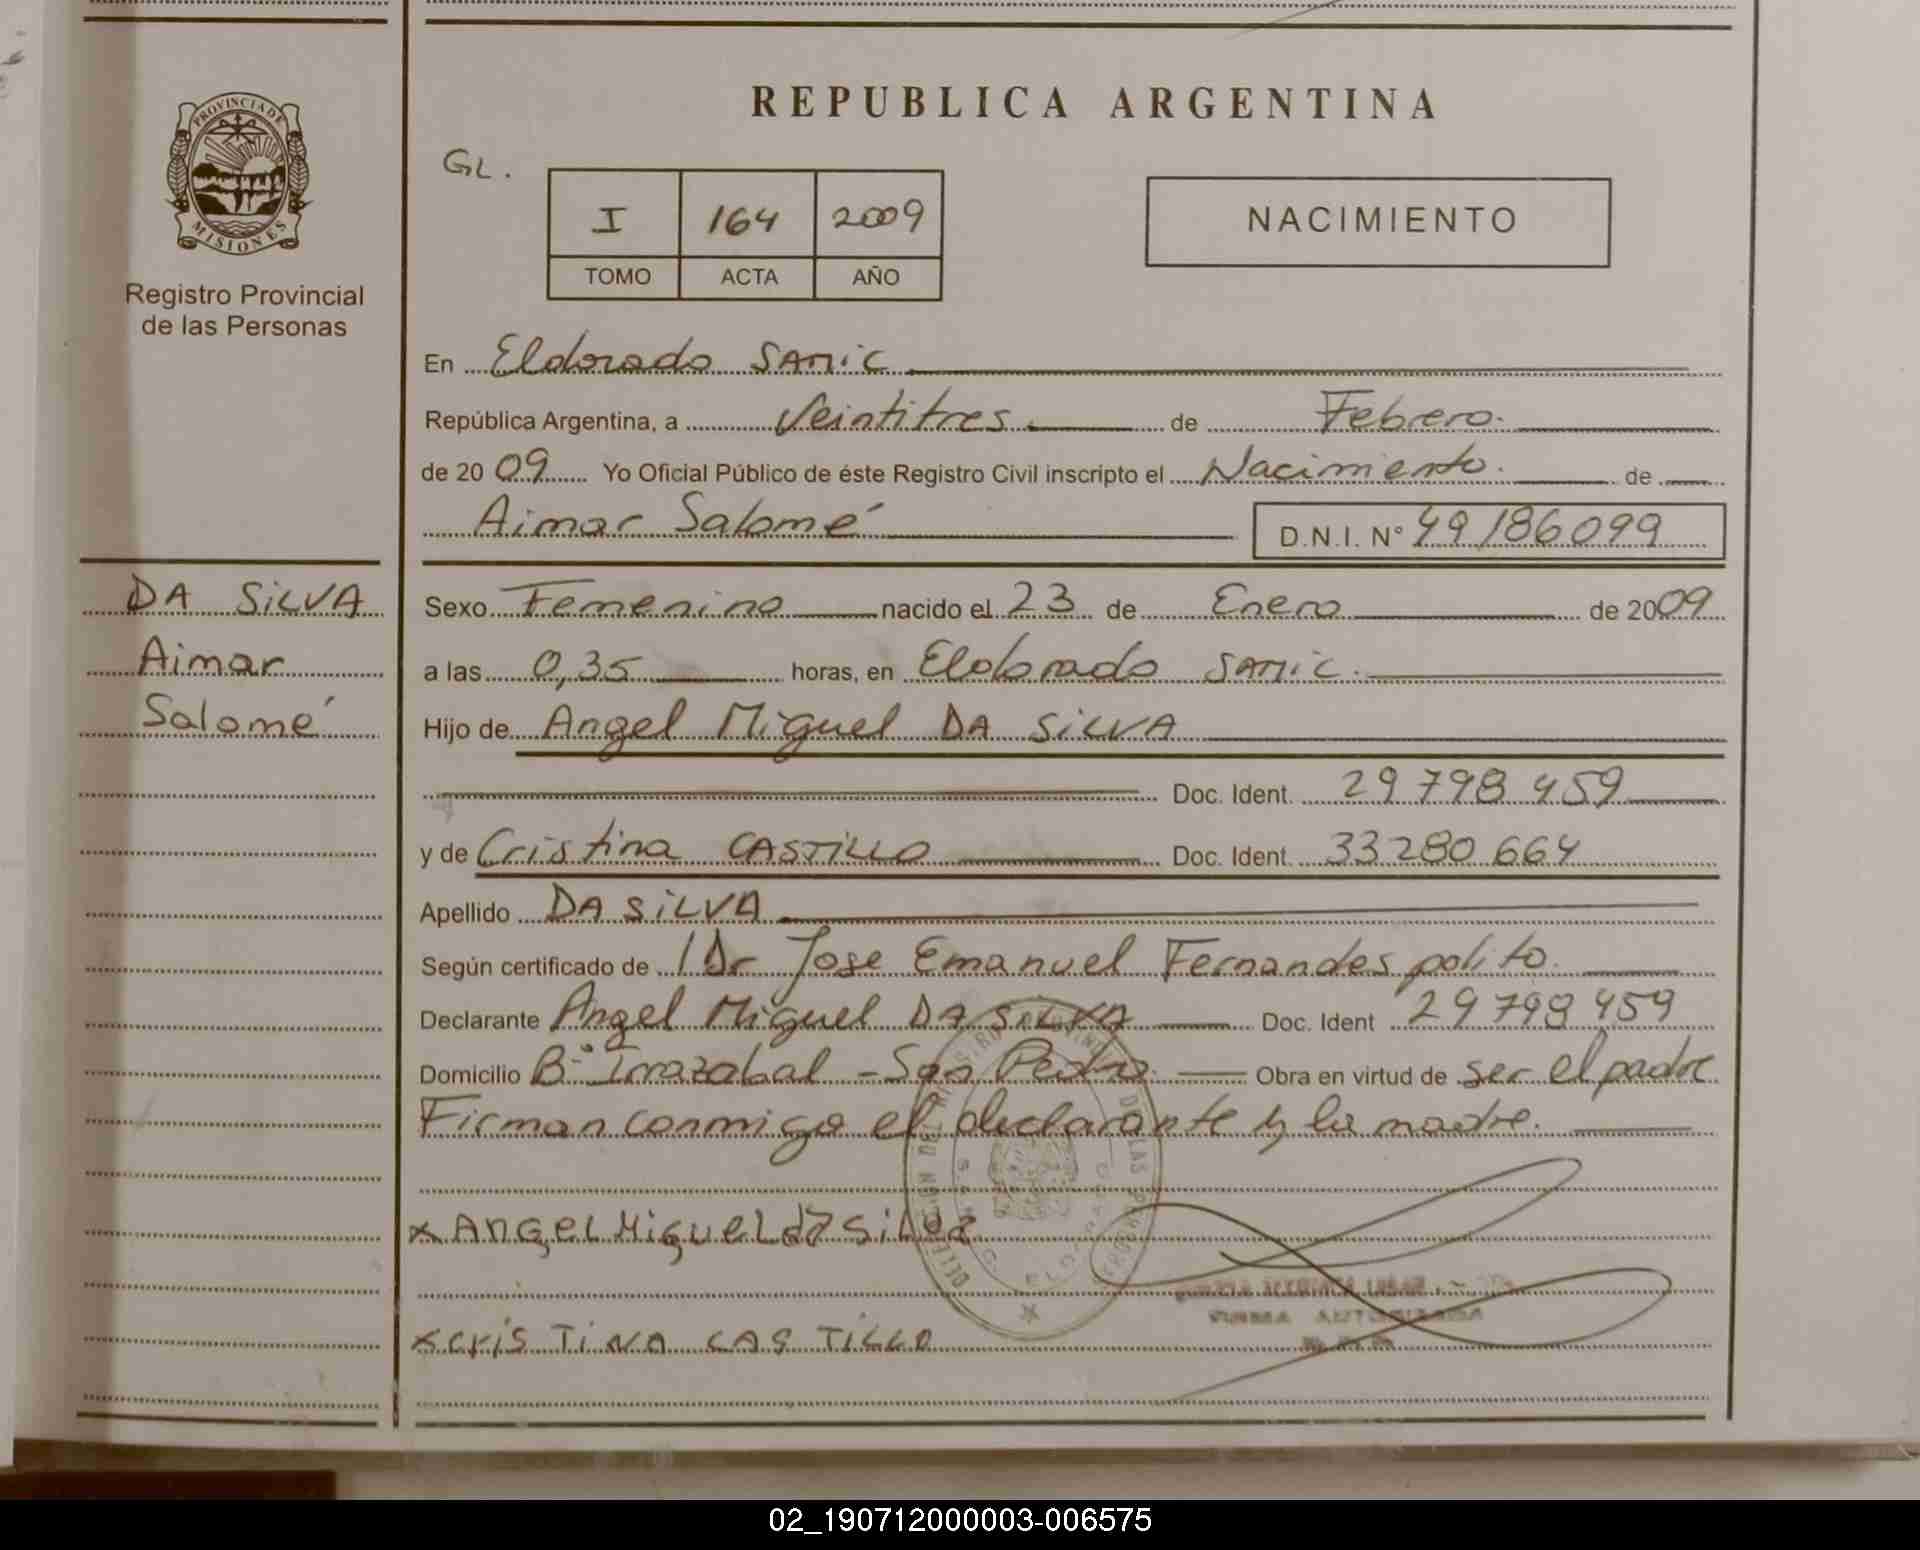 PROVINCIA DE
MISIONES
Registro Provincial
de las Personas
DA SILVA
Aimar
Salomé
REPUBLICA ARGENTINA
GL.
I 164 2009
TOMO ACTA AÑO
NACIMIENTO
En Eldorado SAMIC
República Argentina, a Veintitres de Febrero.
de 2009 Yo Oficial Público de éste Registro Civil inscripto el Nacimiento. de
Aimar Salomé D.N.I. N° 49186099
Sexo Femenino nacido el 23 de Enero de 2009
a las 0,35 horas, en Eldorado SAMIC.
Hijo de Angel Miguel DA SILVA
Doc. Ident. 29 798 459
y de Cristina CASTILLO Doc. Ident. 33 280 664
Apellido DA SILVA
Según certificado de Dr Jose Emanuel Fernandes polito.
Declarante Angel Miguel DA SILVA Doc. Ident 29 798 459
Domicilio B° Irrazabal - San Pedro. Obra en virtud de ser el padre
Firman conmigo el declarante y la madre.
x Angel Miguel da Silva
x CRISTINA CASTILLO
02_190712000003-006575